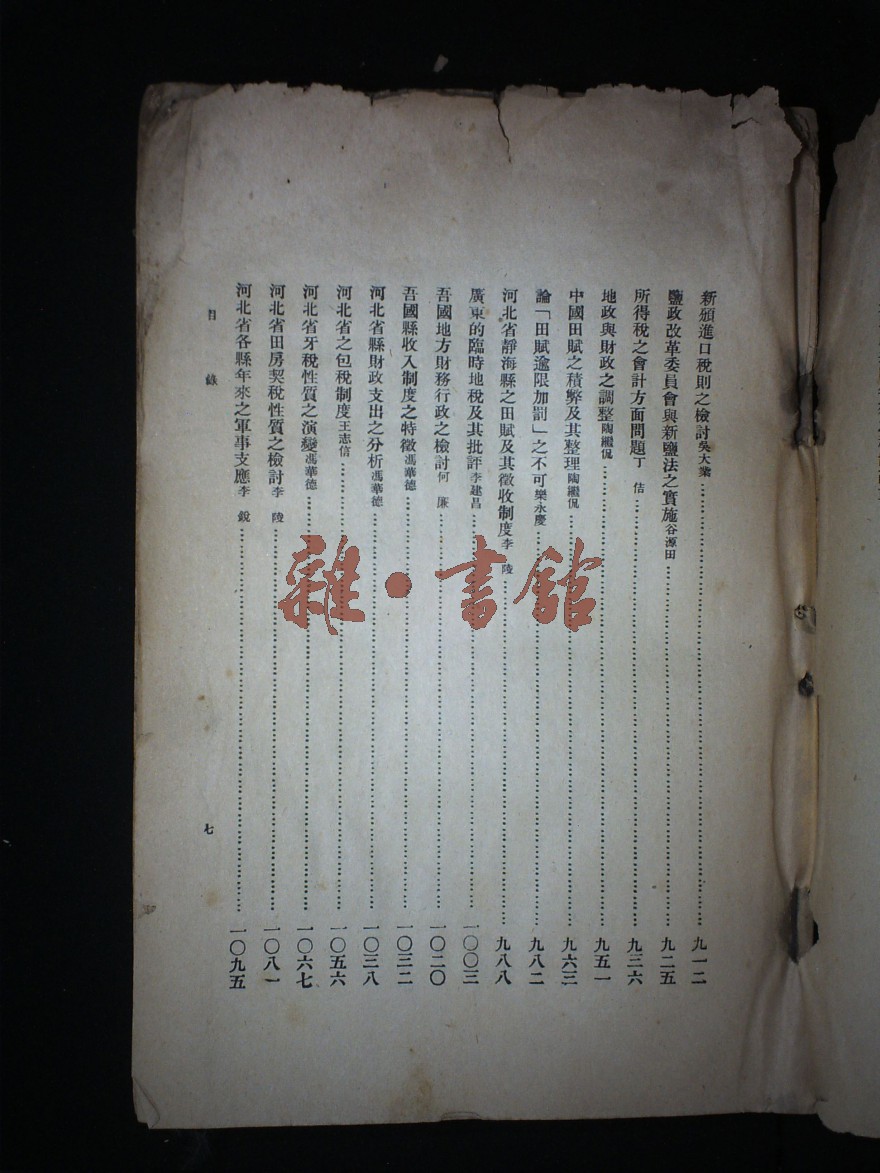 新頒進口稅則之檢討吳大業………九一二
鹽政改革委員會與新鹽法之實施谷源田………九二五
所得稅之會計方面問題丁 佶………九三六
地政與財政之調整陶繼侃………九五一
中國田賦之積弊及其整理陶繼侃………九六三
論「田賦逾限加罰」之不可樂永慶………九八二
河北省靜海縣之田賦及其徵收制度李 陵………九八八
廣東的臨時地稅及其批評李建昌………一〇〇三
吾國地方財務行政之檢討何 廉………一〇二〇
吾國縣收入制度之特徵馮華德………一〇三二
河北省縣財政支出之分析馮華德………一〇三八
河北省之包稅制度王志信………一〇五六
河北省牙稅性質之演變馮華德………一〇六七
河北省田房契稅性質之檢討李 陵………一〇八一
河北省各縣年來之軍事支應李 銳………一〇九五
目 錄
七
雜·書館